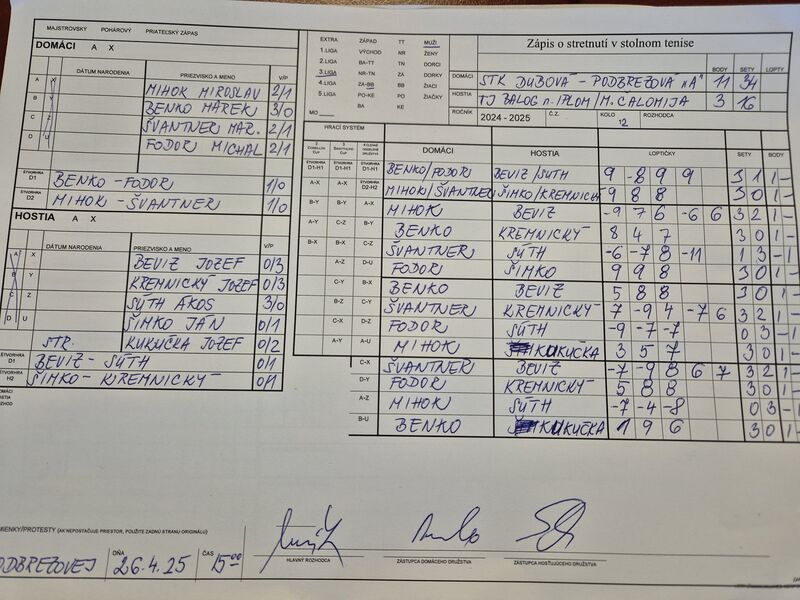 MAJSTROVSKÝ POHÁROVÝ PRIATEĽSKÝ ZÁPAS
DOMÁCI A X
DÁTUM NARODENIA PRIEZVISKO A MENO V/P
A X MIHOK MIROSLAV 2/1
B Y BENKO MAREK 3/0
C Z ŠVANTNER MAR. 2/1
D U FODOR MICHAL 2/1
ŠTVORHRA D1 BENKO - FODOR 1/0
ŠTVORHRA D2 MIHOK - ŠVANTNER 1/0
HOSTIA A X
DÁTUM NARODENIA PRIEZVISKO A MENO V/P
A X BEVIZ JOZEF 0/3
B Y KREMNICKÝ JOZEF 0/3
C Z SÚTH ÁKOS 3/0
D U ŠIMKO JÁN 0/1
STR. KUKUČKA JOZEF 0/2
ŠTVORHRA D1 BEVIZ - SÚTH 0/1
ŠTVORHRA H2 ŠIMKO - KREMNICKÝ 0/1
EXTRA ZÁPAD TT MUŽI
1.LIGA VÝCHOD NR ŽENY
2.LIGA BA-TT TN DORCI
3.LIGA NR-TN ZA DORKY
4.LIGA ZA-BB BB ŽIACI
5.LIGA PO-KE PO ŽIAČKY
MO BA KE
Zápis o stretnutí v stolnom tenise
BODY SETY LOPTY
DOMÁCI STK DUBOVÁ - PODBREZOVÁ "A" 11 34
HOSTIA TJ BALOG n. IPLOM / M. CALOMIJA 3 16
ROČNÍK 2024 - 2025 Č.Z. KOLO 12 ROZHODCA
HRACÍ SYSTÉM DOMÁCI HOSTIA LOPTIČKY SETY BODY
D1-H1 D1-H1 D1-H1 BENKO/FODOR BEVIZ/SÚTH 9 -8 9 9 3 1 1 -
A-X A-X D2-H2 MIHOK/ŠVANTNER ŠIMKO/KREMNICKÝ 9 8 8 3 0 1 -
B-Y B-Y A-X MIHOK BEVIZ -9 7 6 -6 6 3 2 1 -
A-Y C-Z B-Y BENKO KREMNICKÝ 8 4 7 3 0 1 -
B-X B-X C-Z ŠVANTNER SÚTH -6 -7 8 -11 1 3 - 1
A-Z D-U FODOR ŠIMKO 9 9 8 3 0 1 -
C-Y B-X BENKO BEVIZ 5 8 8 3 0 1 -
B-Z C-Y ŠVANTNER KREMNICKÝ 7 -9 4 -7 6 3 2 1 -
C-X D-Z FODOR SÚTH -9 -7 -7 0 3 - 1
A-Y A-U MIHOK KUKUČKA 3 5 7 3 0 1 -
C-X ŠVANTNER BEVIZ -7 -9 8 6 7 3 2 1 -
D-Y FODOR KREMNICKÝ 5 8 8 3 0 1 -
A-Z MIHOK SÚTH -7 -4 -8 0 3 - 1
B-U BENKO KUKUČKA 1 9 6 3 0 1 -
MIENKY/PROTESTY (AK NEPOSTAČUJE PRIESTOR, POUŽITE ZADNÚ STRANU ORIGINÁLU)
ODBREZOVEJ DŇA 26.4.25 ČAS 15 00
HLAVNÝ ROZHODCA ZÁSTUPCA DOMÁCEHO DRUŽSTVA ZÁSTUPCA HOSŤUJÚCEHO DRUŽSTVA